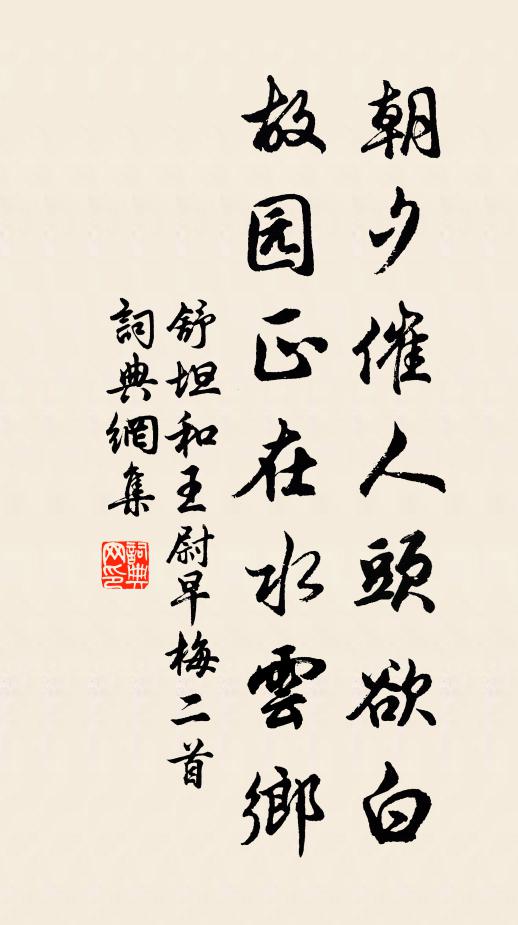 朝夕催人頭欲白
故园正在水雲鄉
舒坦和王尉早梅二首
詞典網集
詞典网印